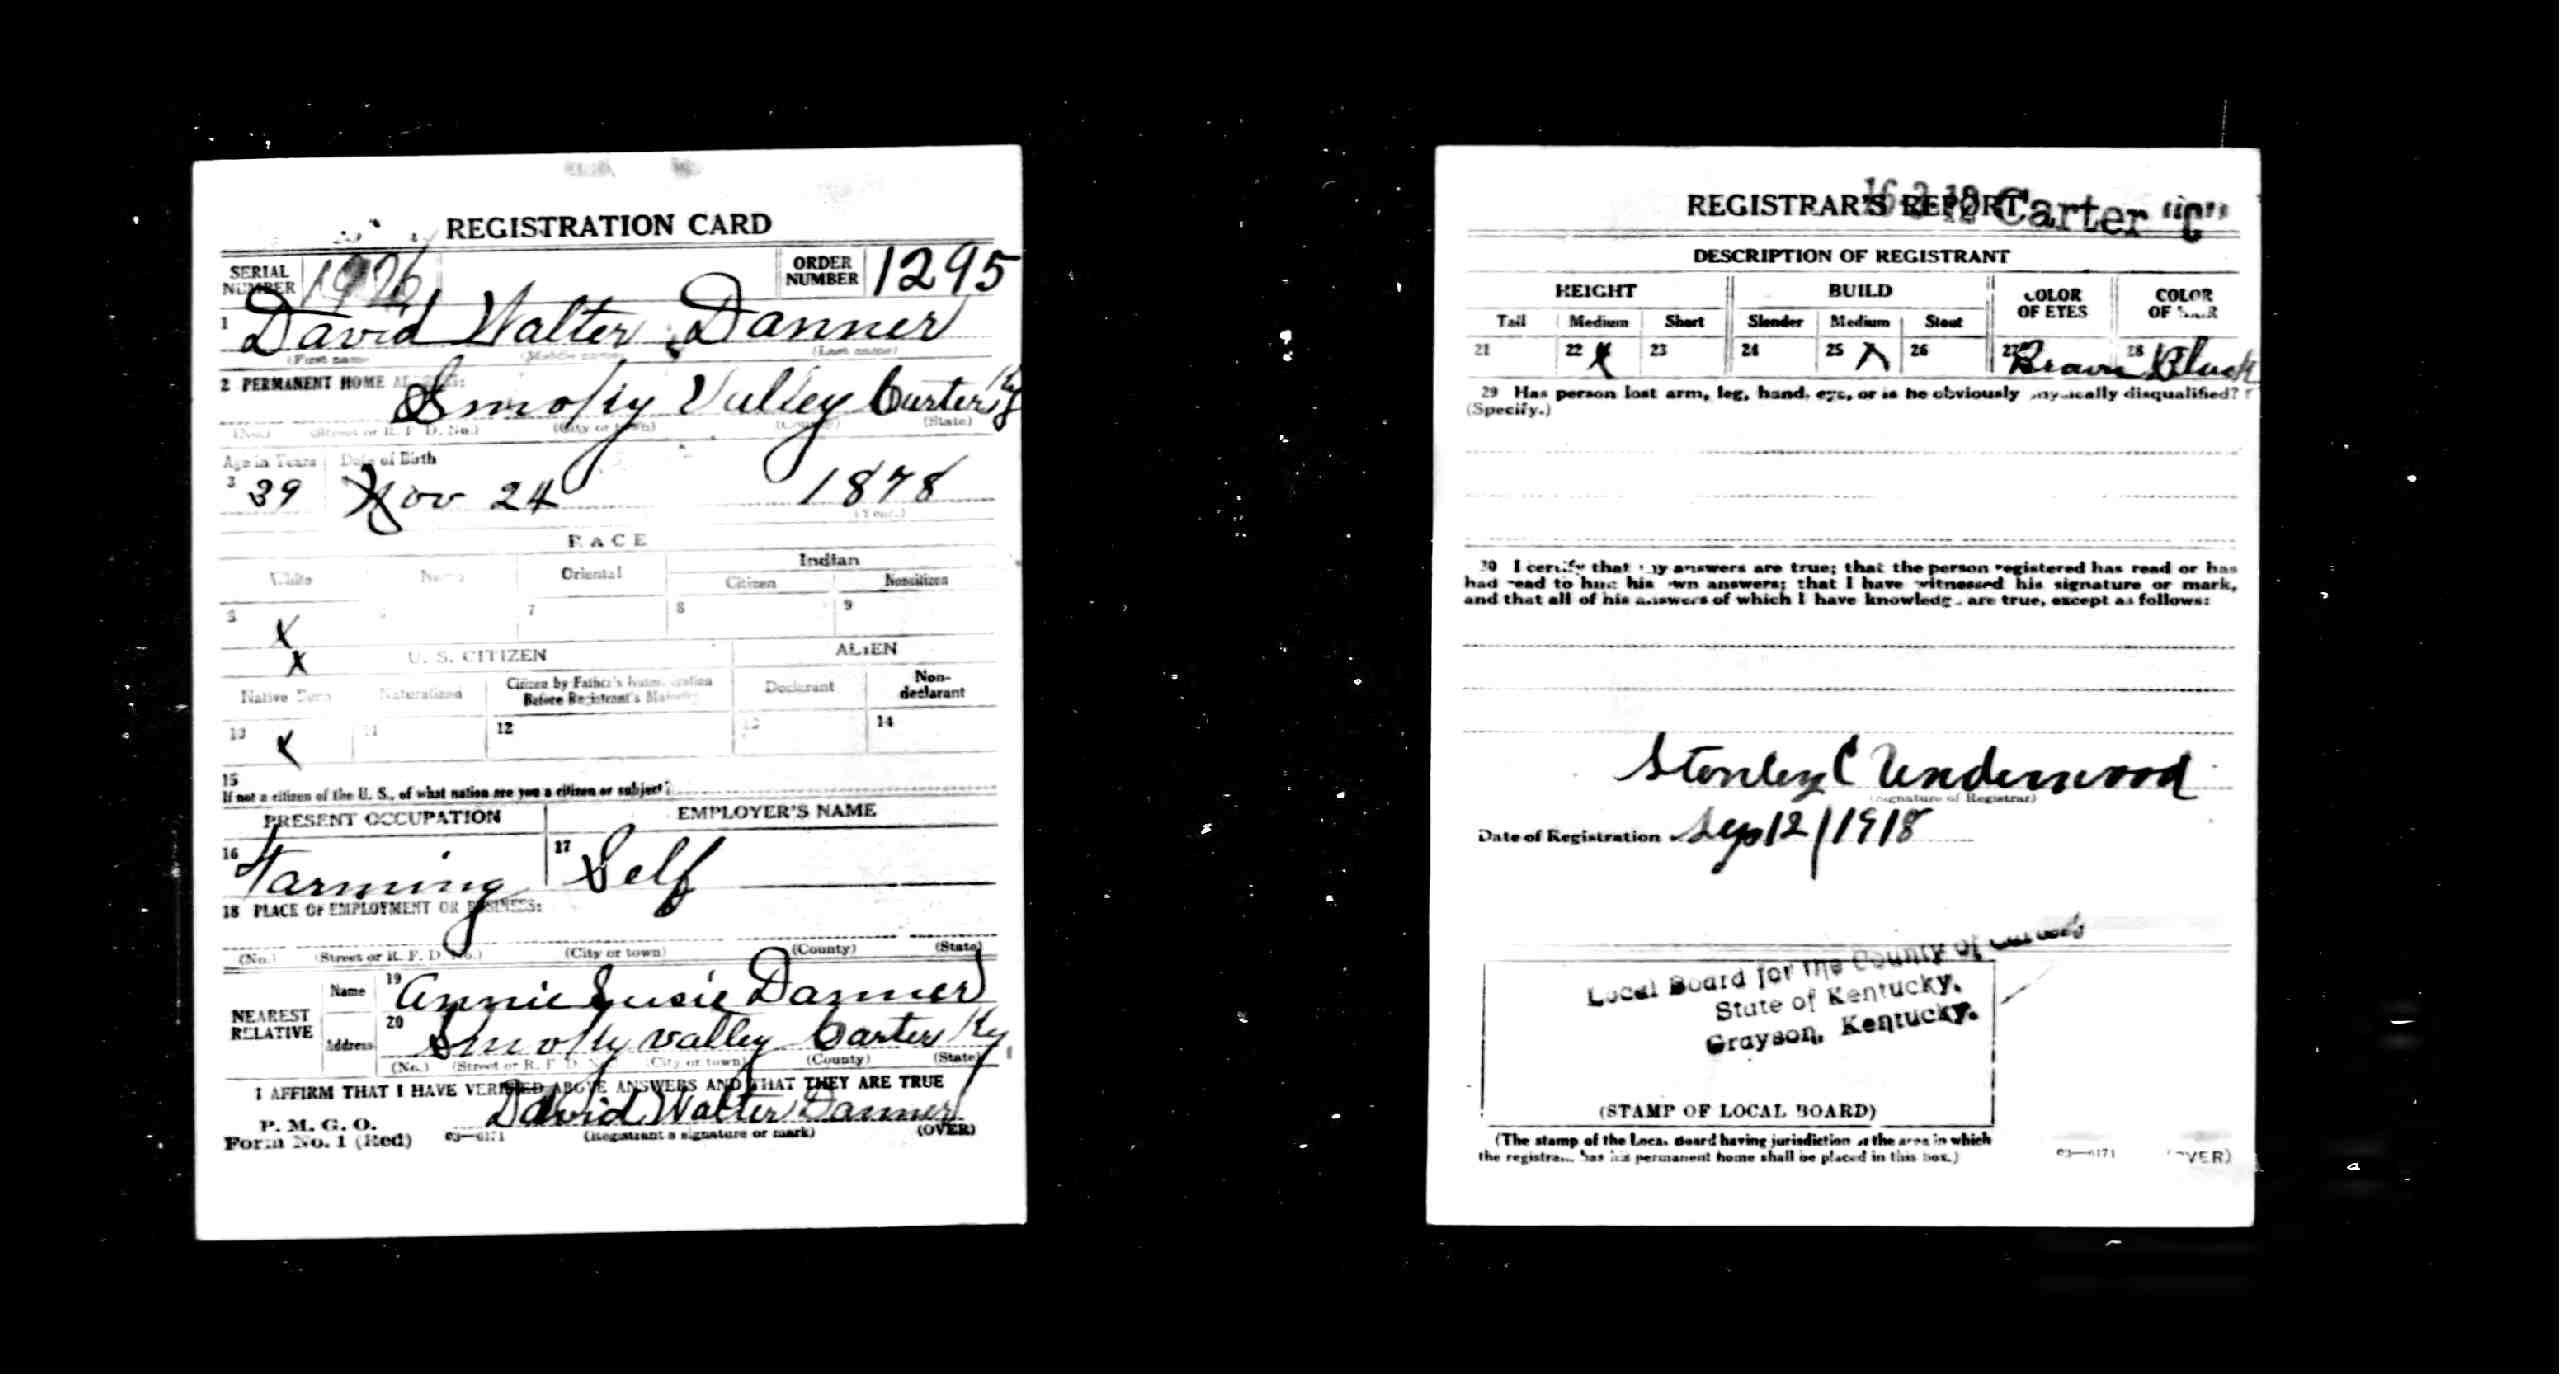 REGISTRATION CARD
SERIAL NUMBER 1926 ORDER NUMBER 1295
1 David Walter Danner
(First name) (Middle name) (Last name)
2 PERMANENT HOME
Smoky Valley Carter Ky
(No.) (Street or R. F. D. No.) (City or town) (County) (State)
Age in Years Date of Birth
3 39 Nov 24 1878
(Year.)
RACE
White Negro Oriental Indian
Citizen Noncitizen
5 X 7 8 9
X U. S. CITIZEN ALIEN
Native Born Naturalized Citizen by Father's Naturalization Before Registrant's Majority Declarant Non-declarant
10 X 11 12 13 14
15
If not a citizen of the U. S., of what nation are you a citizen or subject?
PRESENT OCCUPATION EMPLOYER'S NAME
16 Farming 17 Self
18 PLACE OF EMPLOYMENT OR BUSINESS:
(No.) (Street or R. F. D. No.) (City or town) (County) (State)
NEAREST RELATIVE
Name 19 Annie Susie Danner
Address 20 Smoky valley Carter Ky
(No.) (Street or R. F. D. No.) (City or town) (County) (State)
I AFFIRM THAT I HAVE VERIFIED ABOVE ANSWERS AND THAT THEY ARE TRUE
P. M. G. O.
Form No. 1 (Red) 03—6171 David Walter Danner
(Registrant's signature or mark) (OVER)
REGISTRAR'S REPORT
Carter "C"
DESCRIPTION OF REGISTRANT
HEIGHT BUILD COLOR OF EYES COLOR OF HAIR
Tall Medium Short Slender Medium Stout
21 22 X 23 24 25 X 26 27 Brown 28 Black
29 Has person lost arm, leg, hand, eye, or is he obviously physically disqualified?
(Specify.)
30 I certify that my answers are true; that the person registered has read or has
had read to him his own answers; that I have witnessed his signature or mark,
and that all of his answers of which I have knowledge are true, except as follows:
Stanley C Underwood
(Signature of Registrar)
Date of Registration Sep 12/1918
Local Board for the County of Carter,
State of Kentucky,
Grayson, Kentucky.
(STAMP OF LOCAL BOARD)
(The stamp of the Local Board having jurisdiction of the area in which
the registrant has his permanent home shall be placed in this box.)
03—6171 (OVER)